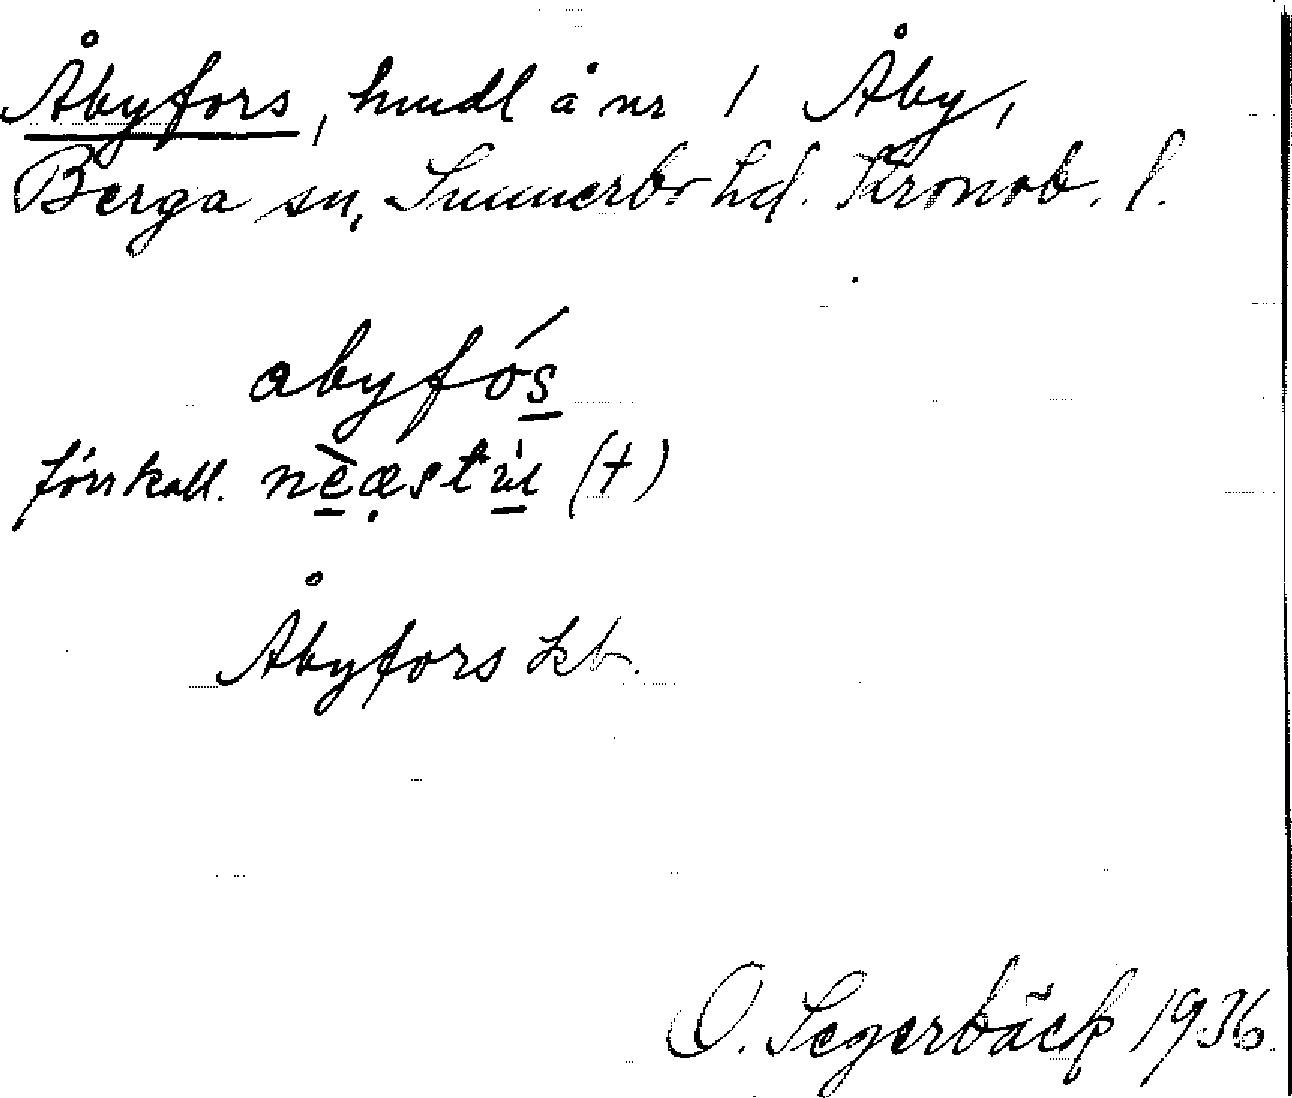 Åbyfors, hmdl å nr 1 Åby,
Berga sn, Sunnerbo hd. Kronob. l.
abyfós
förr kall.
Åbyfors kb.
O. Segerbäck 1936